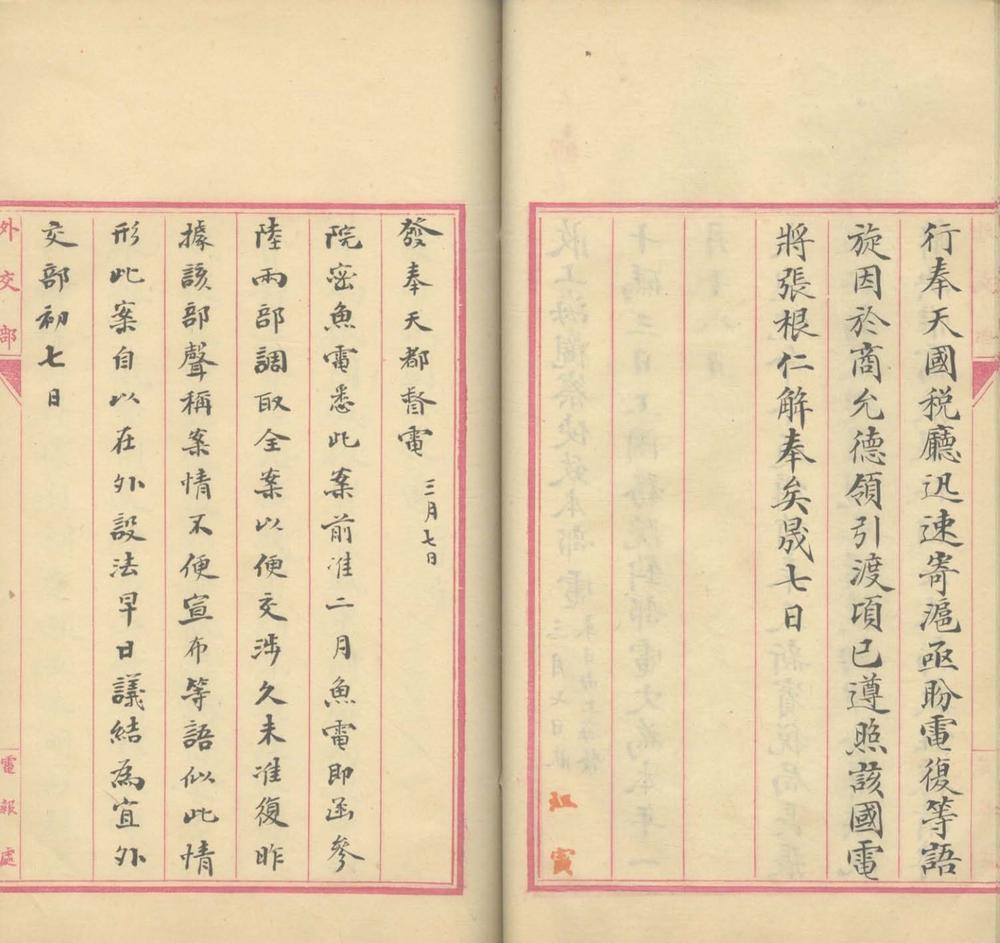 行奉天國税廳迅速寄滬亟盼電復等語
旋因於商允德領引渡頃已遵照該國電
將張根仁解奉矣晟七日
發奉天都督電 三月七日
院密魚電悉此案前准二月魚電即函參
陸兩部調取全案以便交涉久未准復昨
據該部聲稱案情不便宣布等語似此情
形此案自以在外設法早日議結為宜外
交部初七日
外交部
電報處